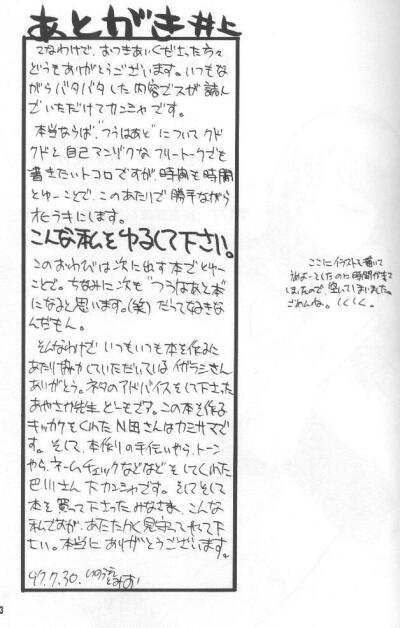 あとがき 井上
てなわけで、おつきあいくださった方々
どうもありがとうございます。いつもな
がらバタバタした内容でスが読ん
でいただけてカンシャです。
本当ならば、“つうはあと”についてクド
クドと自己マンゾクなフリートークでも
書きたいトコロですが、時間も時間
とゆーことで、このあたりで勝手ながら
オヒラキにします。
こんな私をゆるして下さい。
このおわびは次に出す本でとゆー
ことで。ちなみに次も“つうはあと本”
になると思います。(笑)だって好きな
んだもん。
そんなわけで、いつもいつも本を作るに
あたりはみかしていただいているイガラシさん
ありがとう。ネタのアドバイスをして下さった
おやさか先生どーもです。この本を作る
キッカケをくれたN田さんはカミサマで
す。そして、本作りの手伝いやら、トーン
やら、ネームチェックなどなどをしてくれた
巴川さん大カンシャです。そしてそして
本を買って下さったみなさま、こんな
私ですが、あたたかく見守ってやって下
さい。本当にありがとうございます。
97.7.30. いのうえとみお
ここにイラストを書いて
うめよーとしたのに時間がなくて
しまったので、空いてしまいました。
ごめんね。しくしく。
3